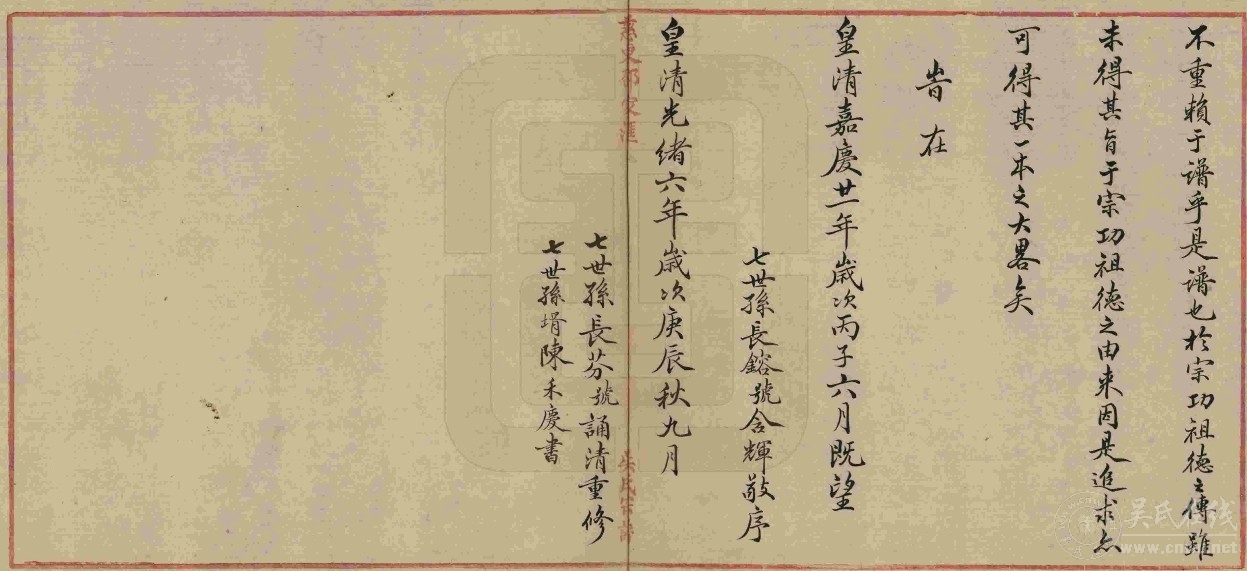 不重賴于譜乎是譜也於宗功祖德之傳雖
未得其旨于宗功祖德之由来因是追求亦
可得其一本之大畧矣
旹在
皇清嘉慶廿一年歲次丙子六月既望
七世孫長鎔號含輝敬序
皇清光緒六年歲次庚辰秋九月
七世孫長芬號誦清重修
七世孫壻陳禾慶書
慈東邵家滙
吳氏宗譜
吴氏在线